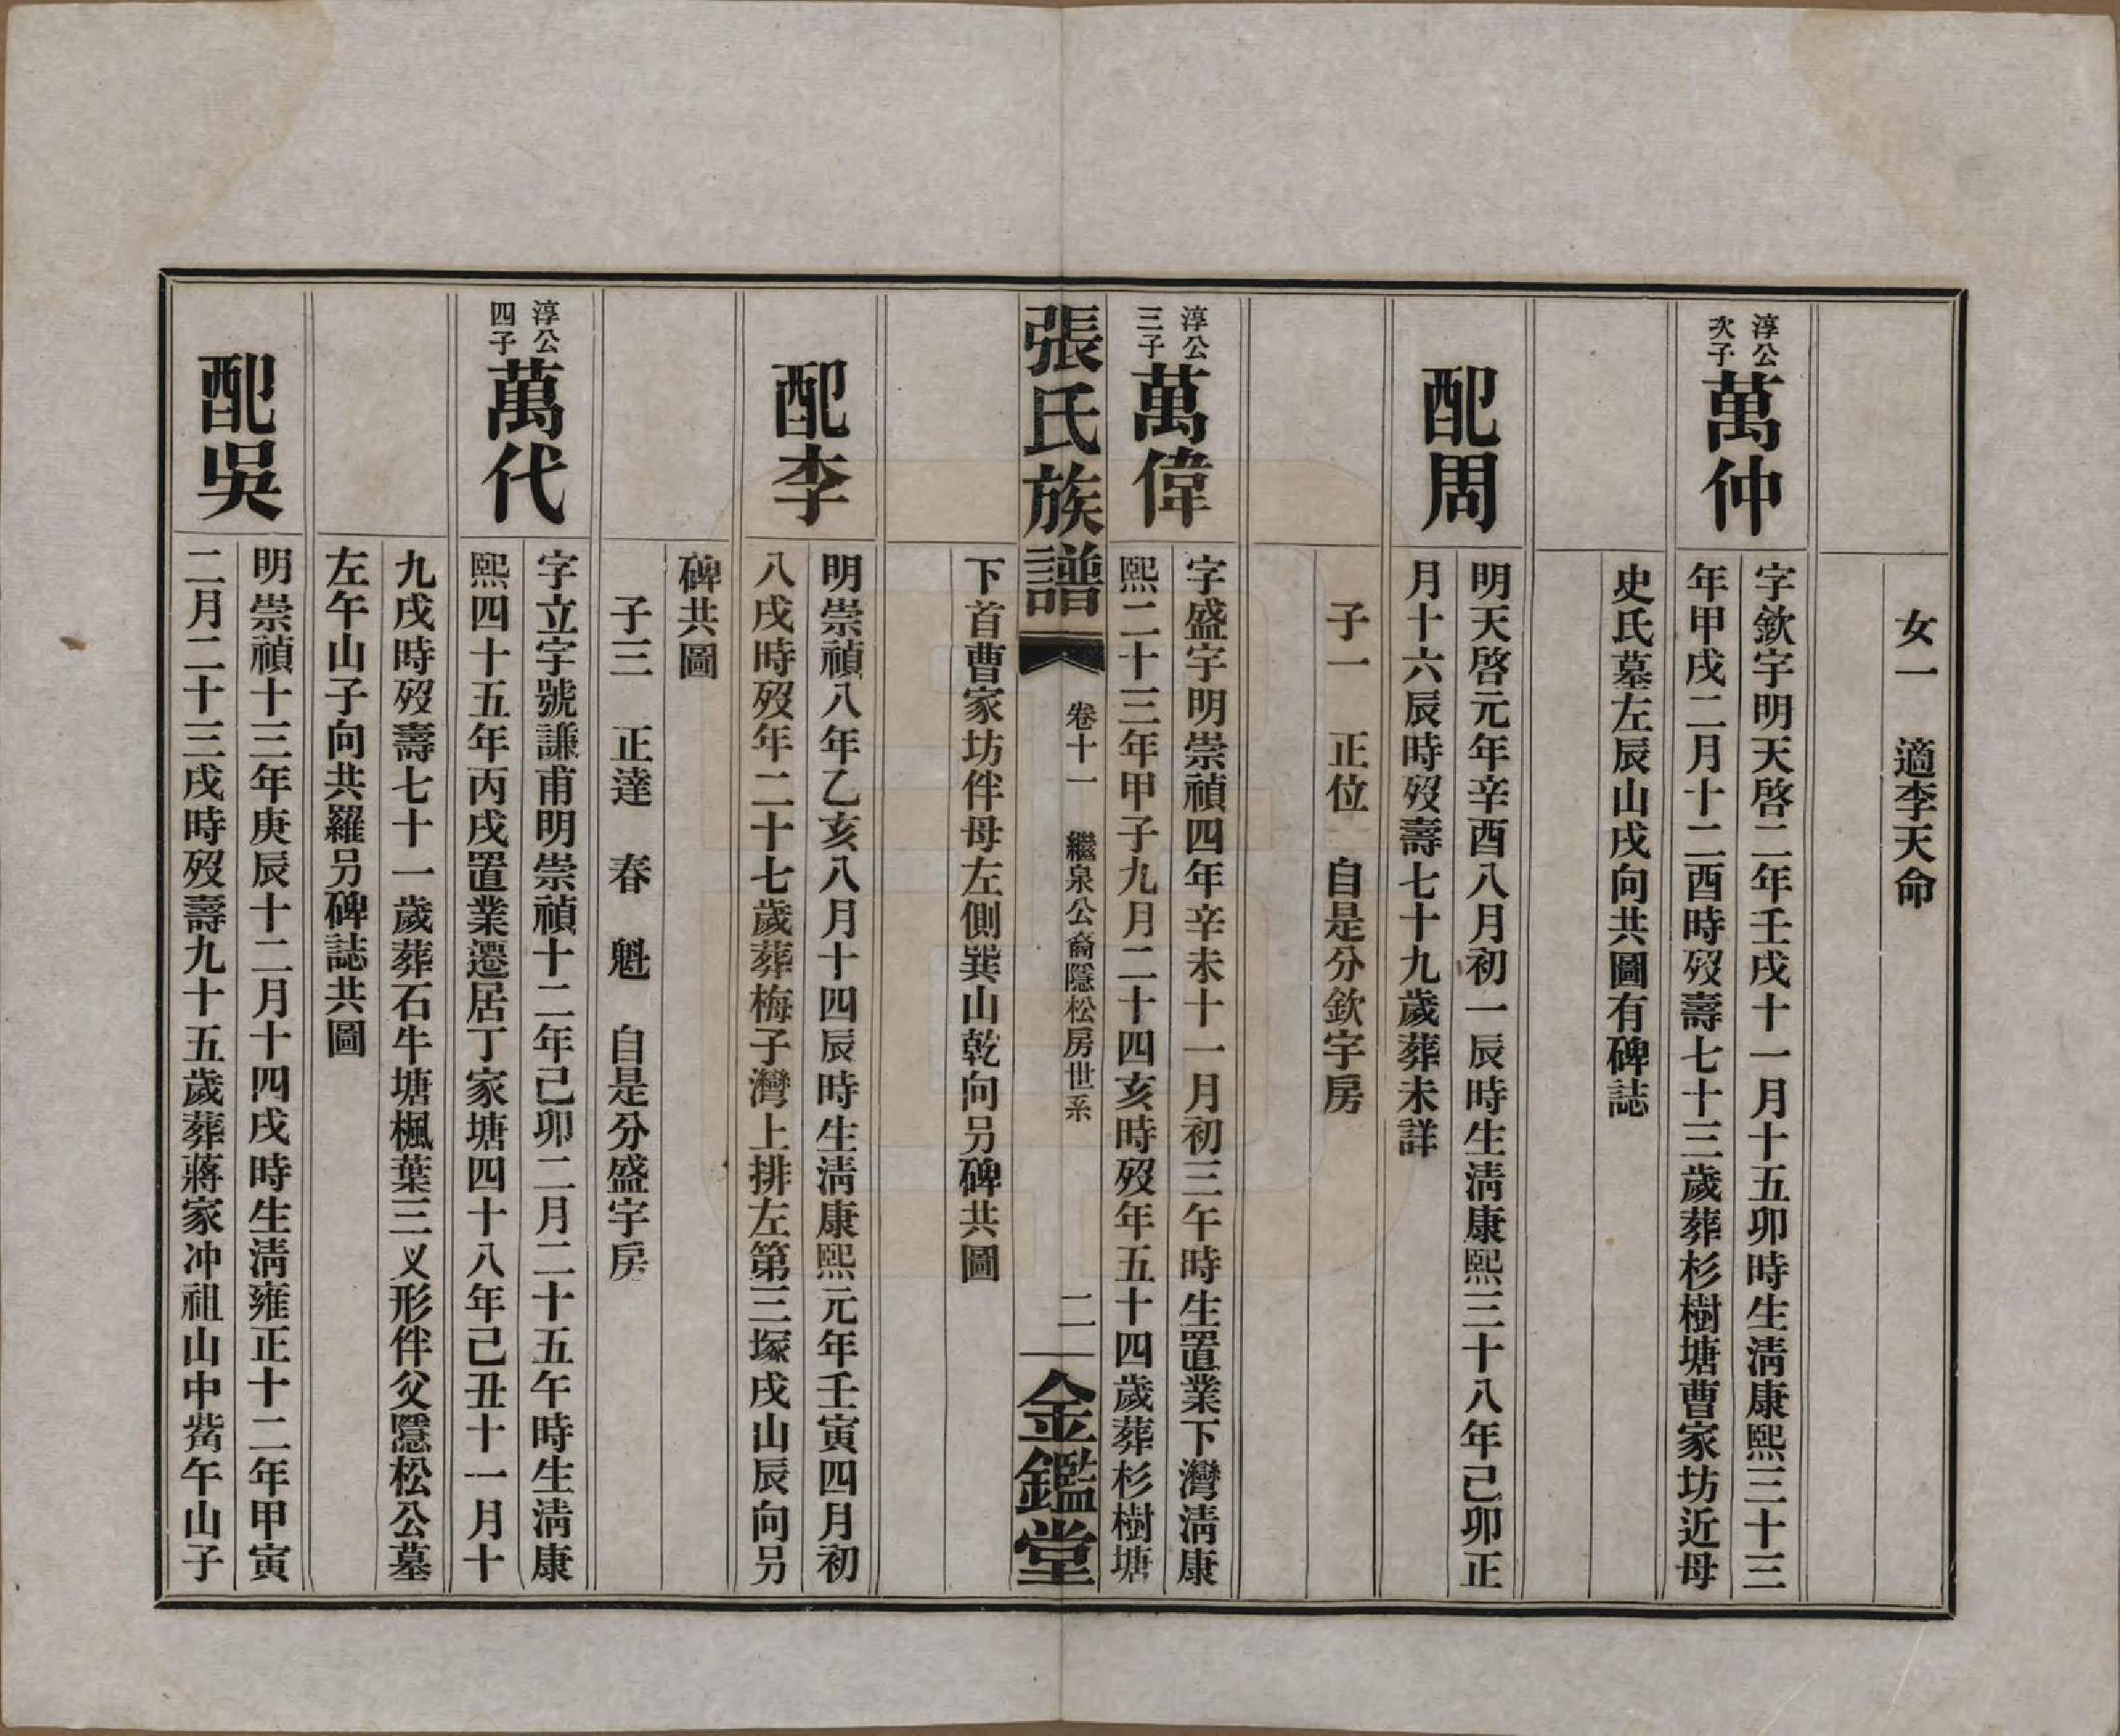 女一　適李天命
淳公次子
萬仲
字欽宇明天啓二年壬戌十一月十五卯時生淸康熙三十三
年甲戌二月十二酉時歿壽七十三歲葬杉樹塘曹家坊近母
史氏墓左辰山戌向共圖有碑誌
配周
明天啓元年辛酉八月初一辰時生淸康熙三十八年己卯正
月十六辰時歿壽七十九歲葬未詳
子一　正位　自是分欽宇房
淳公三子
萬偉
字盛宇明崇禎四年辛未十一月初三午時生置業下灣淸康
熙二十三年甲子九月二十四亥時歿年五十四歲葬杉樹塘
張氏族譜
卷十一　繼泉公裔隱松房世系
二
金鑑堂
下首曹家坊伴母左側巽山乾向另碑共圖
配李
明崇禎八年乙亥八月十四辰時生淸康熙元年壬寅四月初
八戌時歿年二十七歲葬梅子灣上排左第三塚戌山辰向另
碑共圖
子三　正達　春　魁　自是分盛宇房
淳公四子
萬代
字立宇號謙甫明崇禎十二年己卯二月二十五午時生淸康
熙四十五年丙戌置業遷居丁家塘四十八年己丑十一月十
九戌時歿壽七十一歲葬石牛塘楓葉三义形伴父隱松公墓
左午山子向共羅另碑誌共圖
配吳
明崇禎十三年庚辰十二月十四戌時生淸雍正十二年甲寅
二月二十三戌時歿壽九十五歲葬蔣家冲祖山中嵴午山子